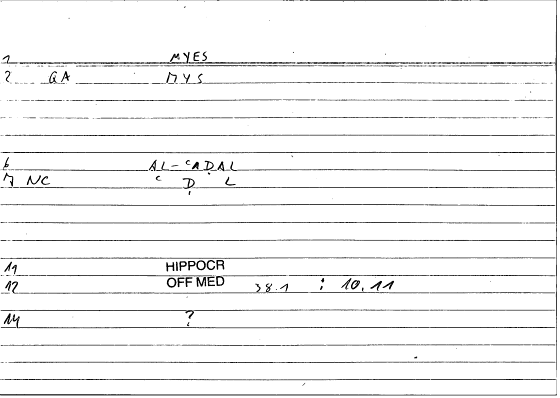 1 MYES
2 GA MYS
6 AL-ʿAḌAL
7 NC ʿ Ḍ L
11 HIPPOCR
12 OFF MED 38.1 : 10,11
14 ?